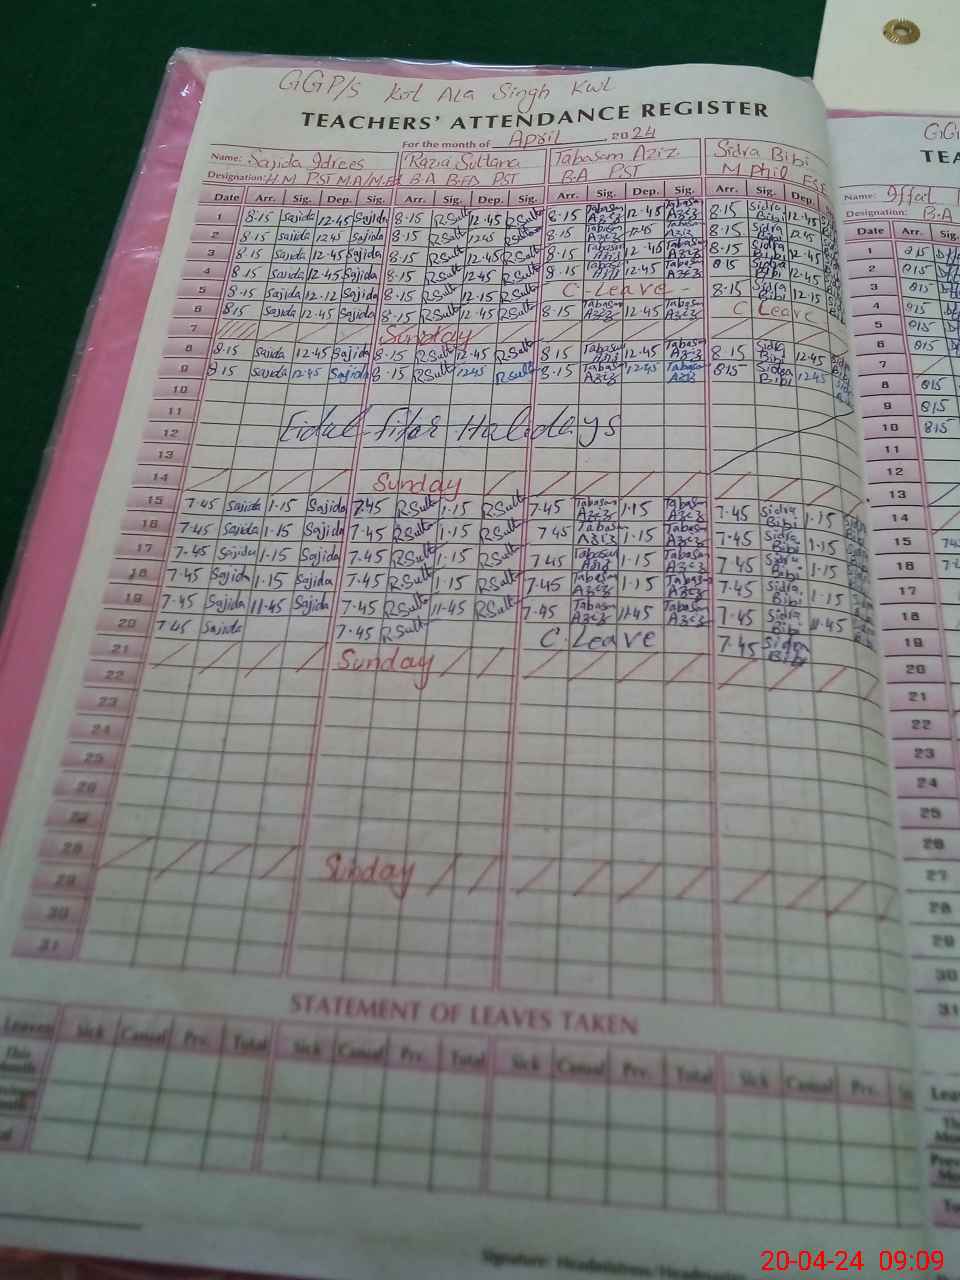 GGP/S Kot Ala Singh Kwl
TEACHERS' ATTENDANCE REGISTER
For the month of April 2024
Name: Sajida Idrees Razia Sultana Tabasam Aziz Sidra Bibi
Designation: H.M PST M.A/M.Ed B.A B.ED PST B.A PST M Phil ESE
Date Arr. Sig. Dep. Sig. Arr. Sig. Dep. Sig. Arr. Sig. Dep. Sig. Arr. Sig. Dep.
1 8·15 Sajida 12·45 Sajida 8·15 RSult 12·45 RSult 8·15 Tabasam Aziz 12·45 Tabasam Aziz 8·15 Sidra Bibi 12·45
2 8·15 Sajida 12·45 Sajida 8·15 RSult 12·45 RSult 8·15 Tabasam Aziz 12·45 Tabasam Aziz 8·15 Sidra Bibi 12·45
3 8·15 Sajida 12·45 Sajida 8·15 RSult 12·45 RSult 8·15 Tabasam Aziz 12·45 Tabasam Aziz 8·15 Sidra Bibi 12·45
4 8·15 Sajida 12·45 Sajida 8·15 RSult 12·45 RSult 8·15 Tabasam Aziz 12·45 Tabasam Aziz 8·15 Sidra Bibi 12·45
5 8·15 Sajida 12·12 Sajida 8·15 RSult 12·15 RSult C-Leave - 8·15 Sidra Bibi 12·15
6 8·15 Sajida 12·45 Sajida 8·15 RSult 12·45 RSult 8·15 Tabasam Aziz 12·45 Tabasam Aziz C Leave
7 Sunday
8 8·15 Sajida 12·45 Sajida 8·15 RSult 12·45 RSult 8·15 Tabasam Aziz 12·45 Tabasam Aziz 8·15 Sidra Bibi 12·45
9 8·15 Sajida 12·45 Sajida 8·15 RSult 12·45 RSult 8·15 Tabasam Aziz 12·45 Tabasam Aziz 8·15 Sidra Bibi 12·45
10
11
12 Eidul-fitar Halidays
13
14 Sunday
15 7·45 Sajida 1·15 Sajida 7·45 RSult 1·15 RSult 7·45 Tabasam Aziz 1·15 Tabasam Aziz 7·45 Sidra Bibi 1·15
16 7·45 Sajida 1·15 Sajida 7·45 RSult 1·15 RSult 7·45 Tabasam Aziz 1·15 Tabasam Aziz 7·45 Sidra Bibi 1·15
17 7·45 Sajida 1·15 Sajida 7·45 RSult 1·15 RSult 7·45 Tabasam Aziz 1·15 Tabasam Aziz 7·45 Sidra Bibi 1·15
18 7·45 Sajida 1·15 Sajida 7·45 RSult 1·15 RSult 7·45 Tabasam Aziz 1·15 Tabasam Aziz 7·45 Sidra Bibi 1·15
19 7·45 Sajida 11·45 Sajida 7·45 RSult 11·45 RSult 7·45 Tabasam Aziz 11·45 Tabasam Aziz 7·45 Sidra Bibi 11·45
20 7·45 Sajida 7·45 RSult C·Leave 7·45 Sidra Bibi
21 Sunday
22
23
24
25
26
27
28 Sunday
29
30
31
STATEMENT OF LEAVES TAKEN
Leaves Sick Casual Prv. Total Sick Casual Prv. Total Sick Casual Prv. Total Sick Casual Prv.
This
Signature: Headmistress/Headmaster
GG
TEA
Name: Iffat
Designation: B.A
Date Arr. Sig.
1 815
2 815
3 815
4 815
5 815
6 815
7
8 815
9 815
10 815
11
12
13
14
15
16
17
18
19
20
21
22
23
24
25
26
27
28
29
30
31
20-04-24 09:09